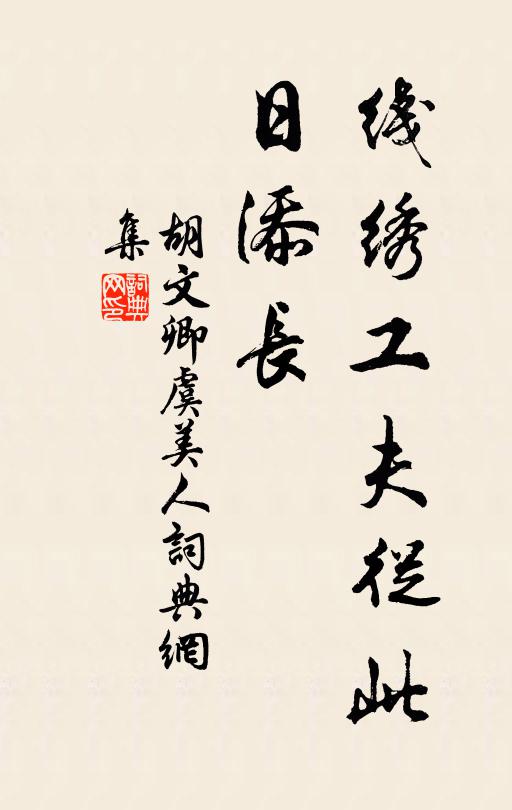 线绣工夫従此
日添長
胡文卿虞美人詞典網
集
詞典网印